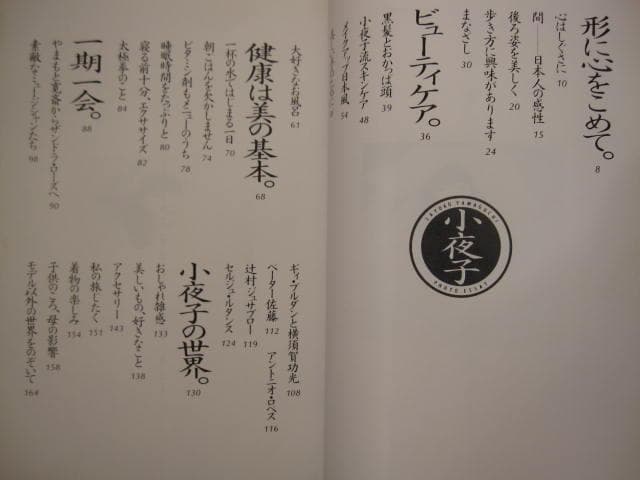 形に心をこめて。 8
心はしぐさに 10
間——日本人の感性 15
後ろ姿を美しく 20
歩き方に興味があります 24
まなざし 30
ビューティケア。 36
黒髪とおかっぱ頭 39
小夜子流スキンケア 48
メイクアップ日本風 54
SAYOKO YAMAGUCHI
小夜子
PHOTO ESSAY
大好きなお風呂 61
健康は美の基本。 68
一杯の水ではじまる一日 70
朝ごはんを欠かしません 74
ビタミン剤もメニューのうち 78
睡眠時間をたっぷりと 80
寝る前十分、エクササイズ 82
太極拳のこと 84
一期一会。 88
やまもと寛斎からザンドラ・ローズへ 90
素敵なミュージシャンたち 98
ギィ・ブルダンと横須賀功光 108
ペーター佐藤 112
アントニオ・ロペス 116
辻村ジュサブロー 119
セルジュ・ルタンス 124
小夜子の世界。 130
おしゃれ雑感 133
美しいもの、好きなこと 138
アクセサリー 143
私の旅じたく 151
着物の楽しみ 154
子供のころ、母の影響 158
モデル以外の世界をのぞいて 164